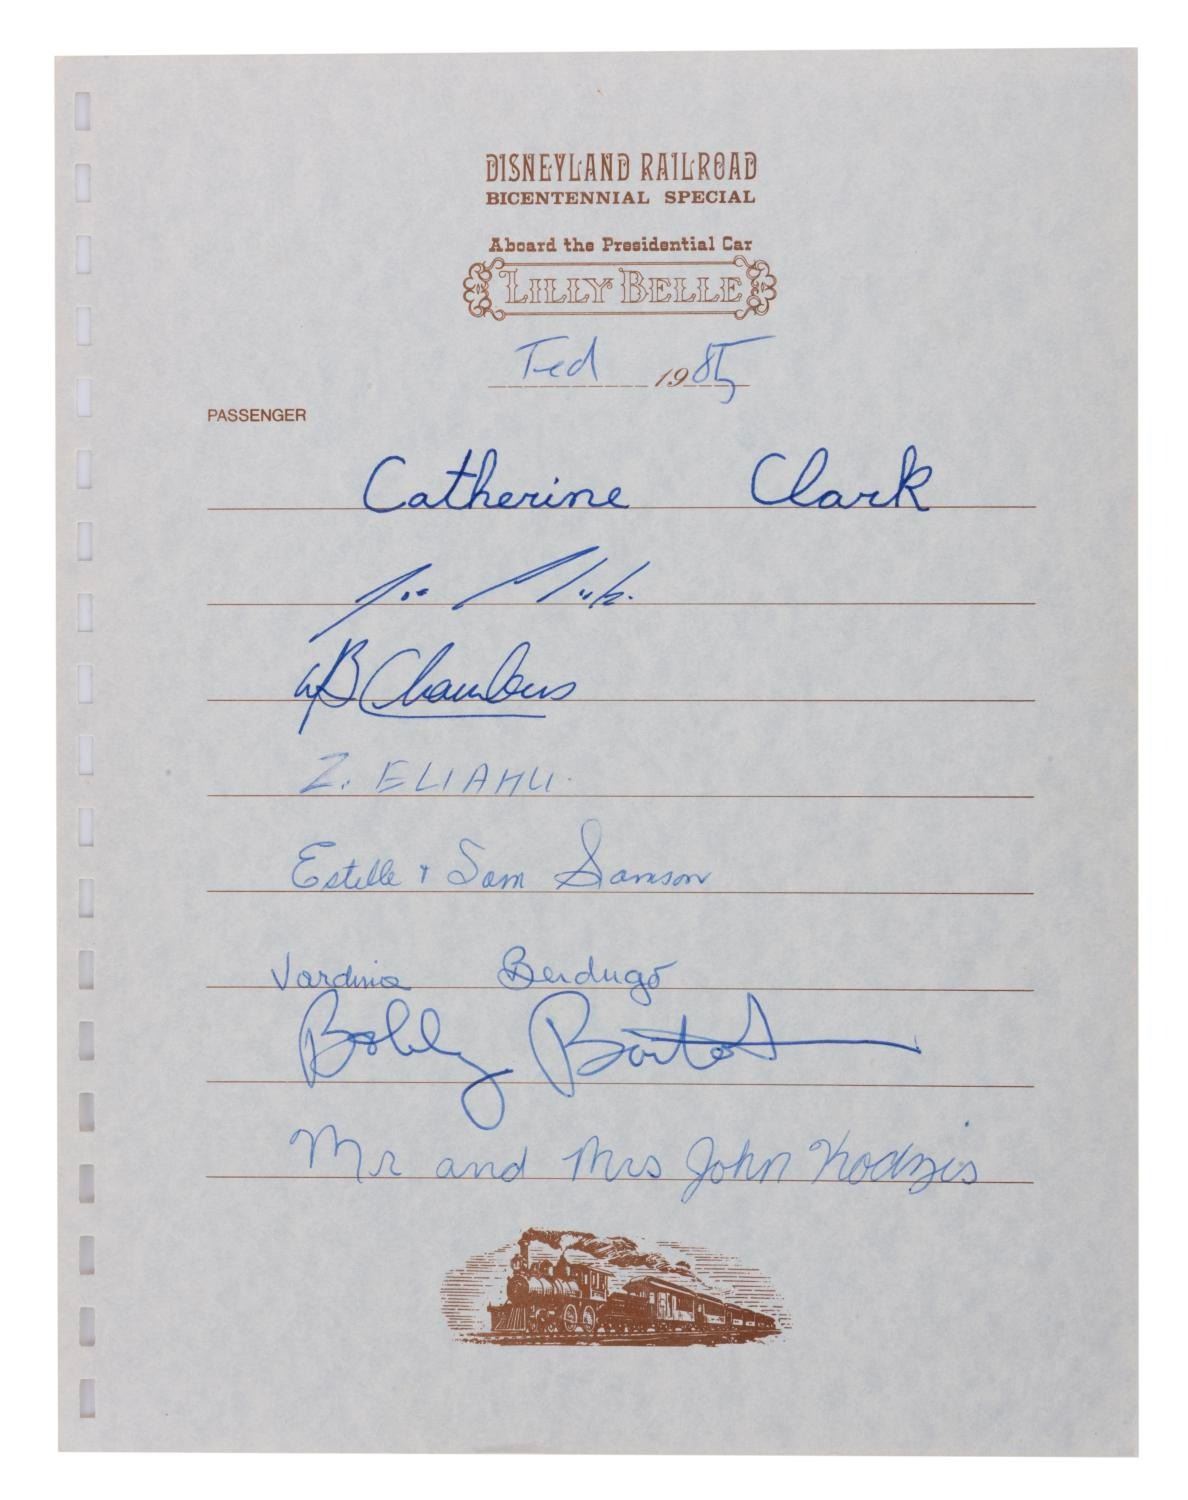 DISNEYLAND RAILROAD
BICENTENNIAL SPECIAL
Aboard the Presidential Car
LILLY BELLE
Ted 1985
PASSENGER
Catherine Clark
B Chambers
Z. ELIAHU
Estelle & Sam Samson
Vardina Berdugo
Bobby
Mr and Mrs John Kodzis